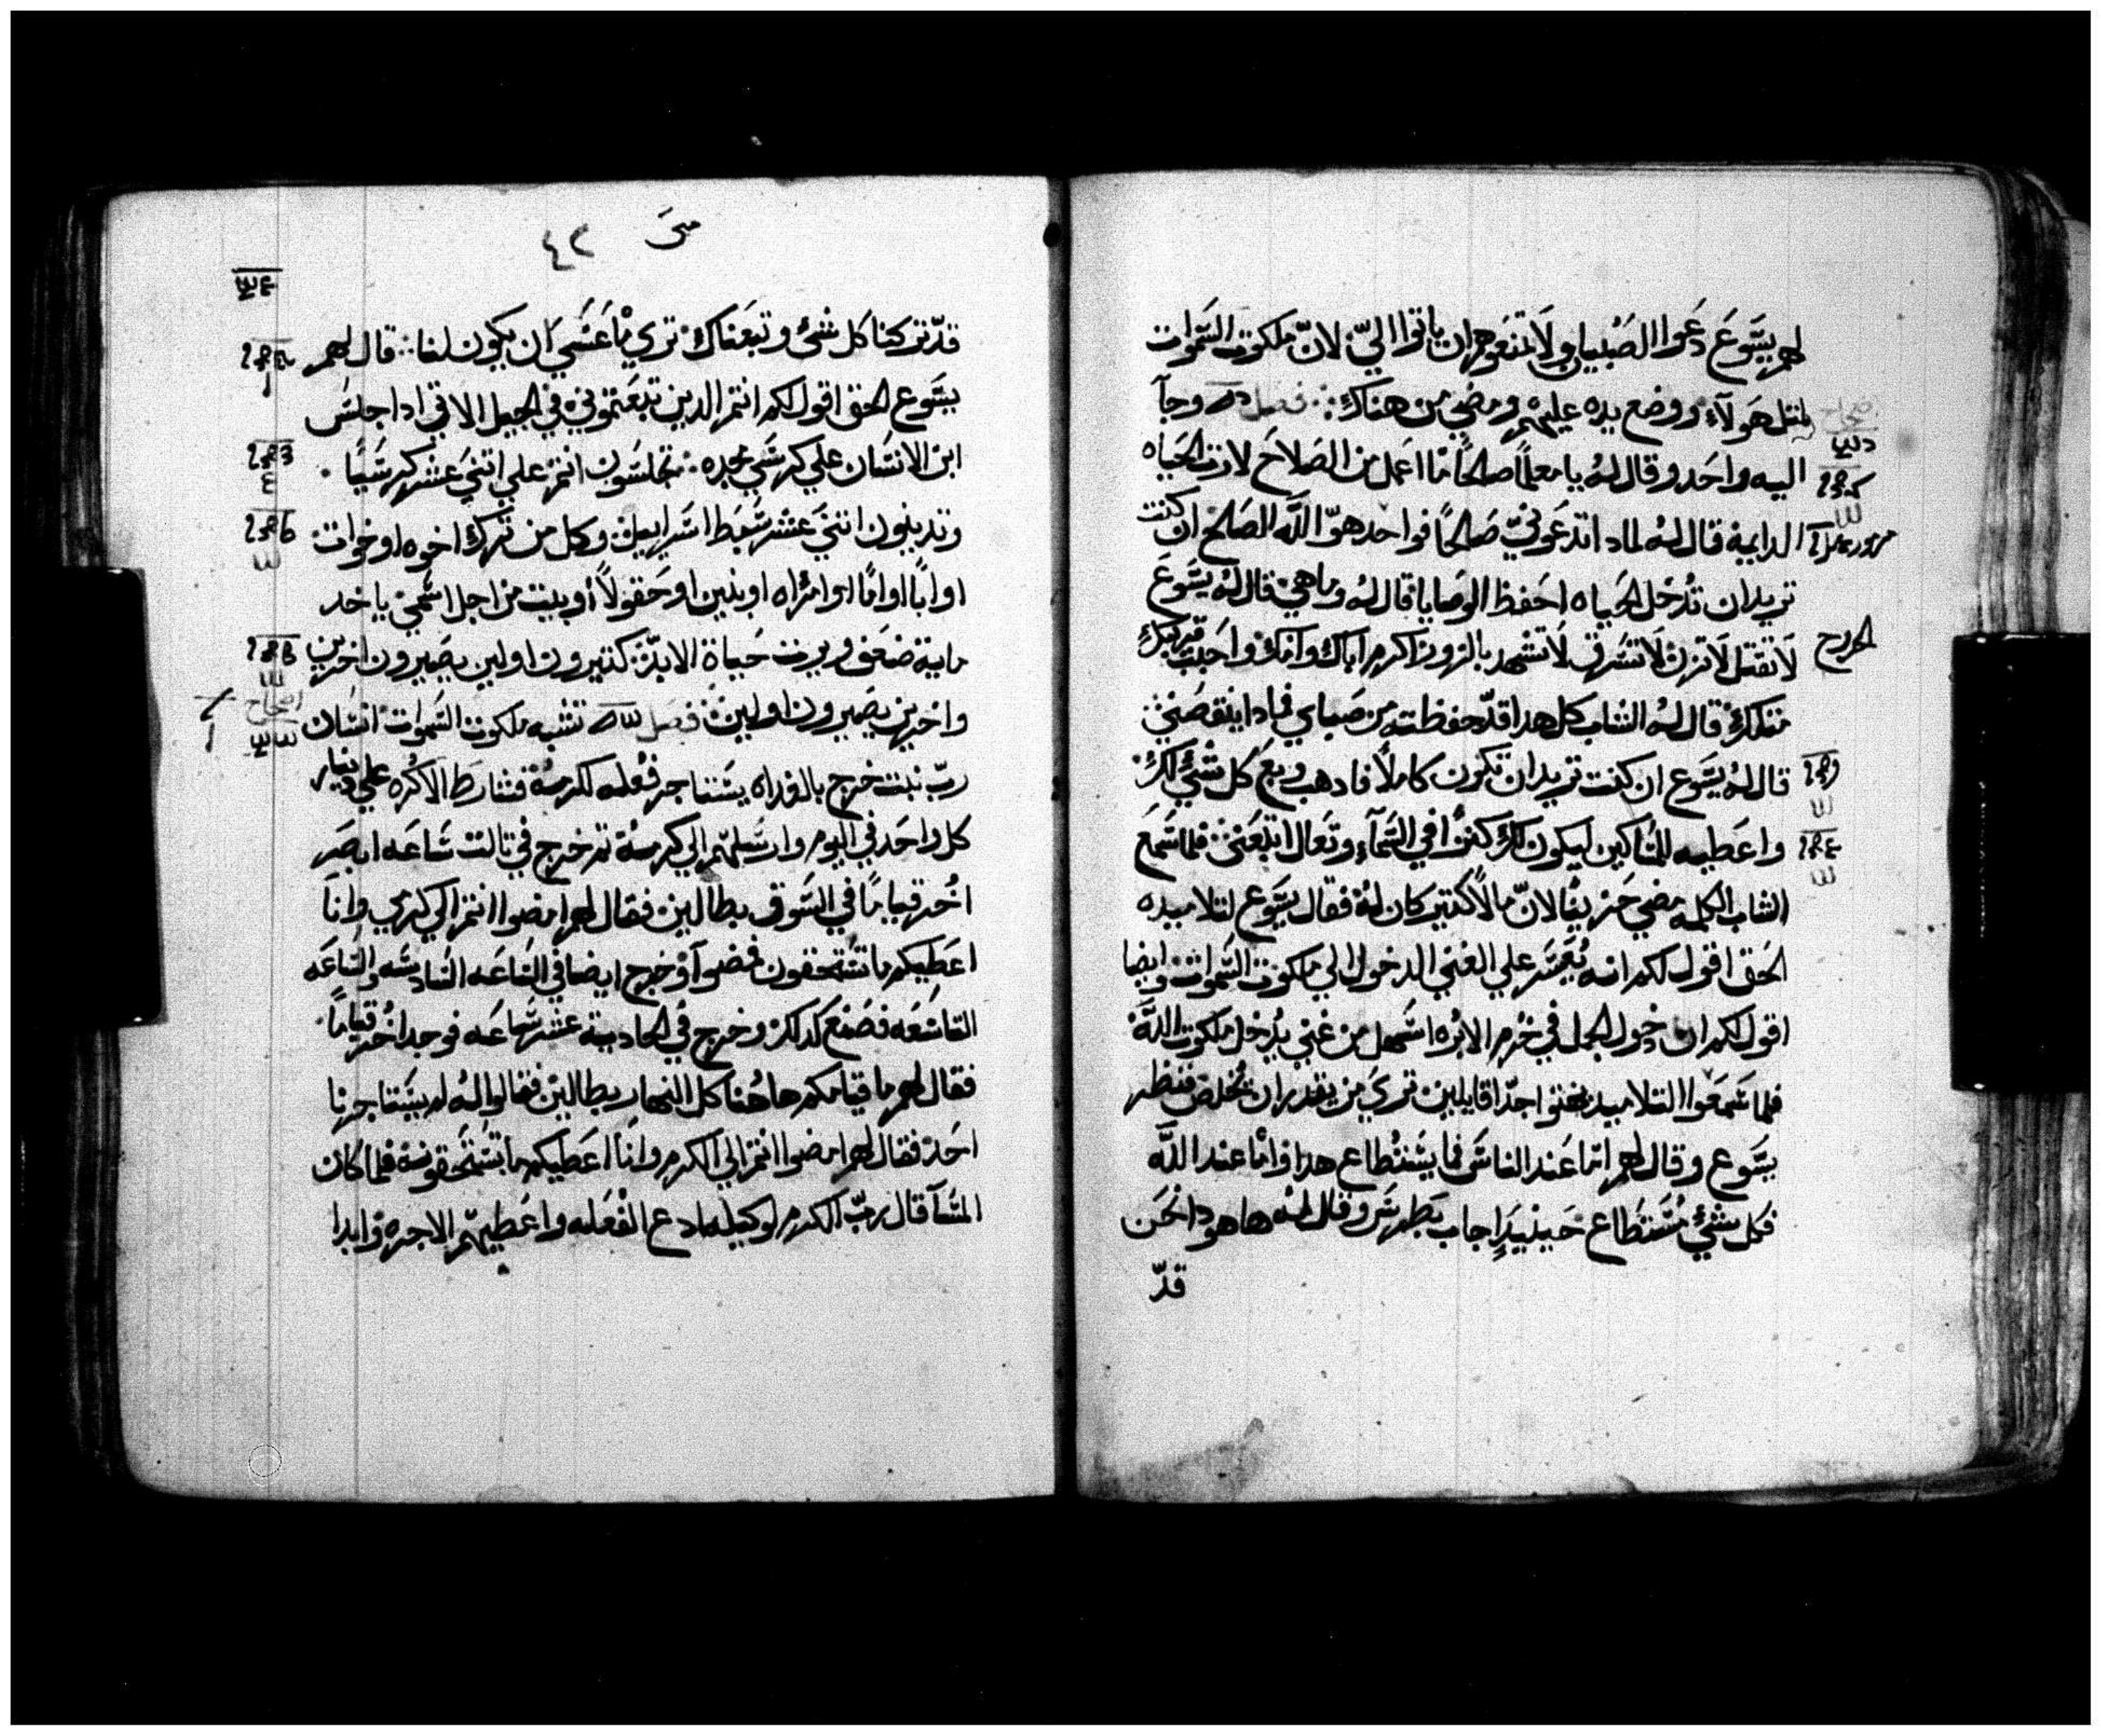 لهم يسوع دعوا الصبيان ولا تمنعوهم ان ياتوا الي لان ملكوت السموات
لمثل هولاء ووضع يده عليهم ومضي من هناك فصل وجآ
اليه واحد وقال له يا معلماً صالحاً ما اعمل من الصلاح لارت الحياه
الدايمة قال له لمادا تدعوني صالحاً فواحد هو الله الصالح ان كنت
تريد ان تدخل الحياه احفظ الوصايا قال له وما هي قال له يسوع
لا تقتل لا تزن لا تسرق لا تشهد بالزور اكرم اباك وامك واحبب قريبك
متلك قال له الشاب كل هدا قد حفظته من صباي فمادا ينقصني
قال له يسوع ان كنت تريد ان تكون كاملاً فادهب وبع كل شئ لك
واعطيه للمساكين ليكون لك كنزا في السمآء وتعال اتبعني فلما سمع
الشاب الكلمه مضي حزيناً لان مالاً كتير كان له فقال يسوع لتلاميده
الحق اقول لكم انه يعسر علي الغني الدخول الي ملكوت السموات وايضا
اقول لكم ان دخول الجمل في خرم الابره اسهل من غني يدخل ملكوت الله
فلما سمعوا التلاميد بهتوا جدّا قايلين تري من يقدر ان يخلص فنظر
يسوع وقال لهم اما عند الناس فما يستطاع هدا واما عند الله
فكل شئ مستطاع حينيدٍ اجاب بطرس وقال له هاهودا نحن
قدّ
متى
٤٢
قدّ تركنا كل شئ وتبعناك تري ما عسي ان يكون لنا قال لهم
يسوع الحق اقول لكم انتم الدين تبعتموني في الجيل الاتي ادا جلس
ابن الانسان علي كرسي مجده تجلسون انتم علي اتني عشر كرسياً
وتدينون اتني عشر سبط اسراييل وكل من ترك اخوه او خوات
او اباً او اماً او امراه او بنين او حقولاً او بيت من اجل اسمي ياخد
ماية ضعف ويرت حياة الابد كتيرون اولين يصيرون اخرين
واخرين يصيرون اولين فصل تشبه ملكوت السموات انسان
ربّ بيت خرج بالغداه يستاجر فعله لكرمه فشارط الاكره علي دينار
كل واحد في اليوم وارسلهم الي كرمه تم خرج في تالت ساعه ابصر
اخر قياماً في السوق بطالين فقال لهم امضوا انتم الي كرمي وانا
اعطيكم ما تستحقون فمضوا وخرج ايضا في الساعه السادسه والساعه
التاسعه فصنع كدلك وخرج في الحادية عشر ساعه فوجد اخر قياماً
فقال لهم ما قيامكم هاهنا كل النهار بطالين فقالوا له لم يستاجرنا
احد فقال لهم امضوا انتم الي الكرم وانا اعطيكم ما تستحقونه فلما كان
المسآ قال ربّ الكرم لوكيله ادع الفعله واعطيهم الاجره وابدا